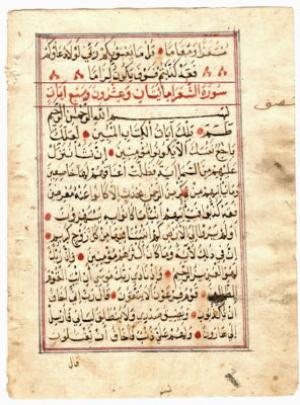 مستقرا ومقاما قل ما يعبؤ بكم ربي لولا دعاؤكم
فقد كذبتم فسوف يكون لزاما
سورة الشعراء مايتان وعشرون وسبع ايات
بسم الله الرحمن الرحيم
طسم تلك آيات الكتاب المبين لعلك
نصف
باخع نفسك الا يكونوا مؤمنين ان نشأ ننزل
عليهم من السماء آية فظلت اعناقهم لها خاضعين
وما يأتيهم من ذكر من الرحمن محدث الا كانوا عنه معرضين
فقد كذبوا فسيأتيهم انباء ما كانوا به يستهزؤن
اولم يروا الى الارض كم انبتنا فيها من كل زوج كريم
ان في ذلك لآية وما كان اكثرهم مؤمنين وان ربك
لهو العزيز الرحيم واذ نادى ربك موسى ان ائت القوم
الظالمين قوم فرعون الا يتقون قال رب اني اخاف
ان يكذبون ويضيق صدري ولا ينطلق لساني فارسل
الى هرون ولهم علي ذنب فاخاف ان يقتلون
قال